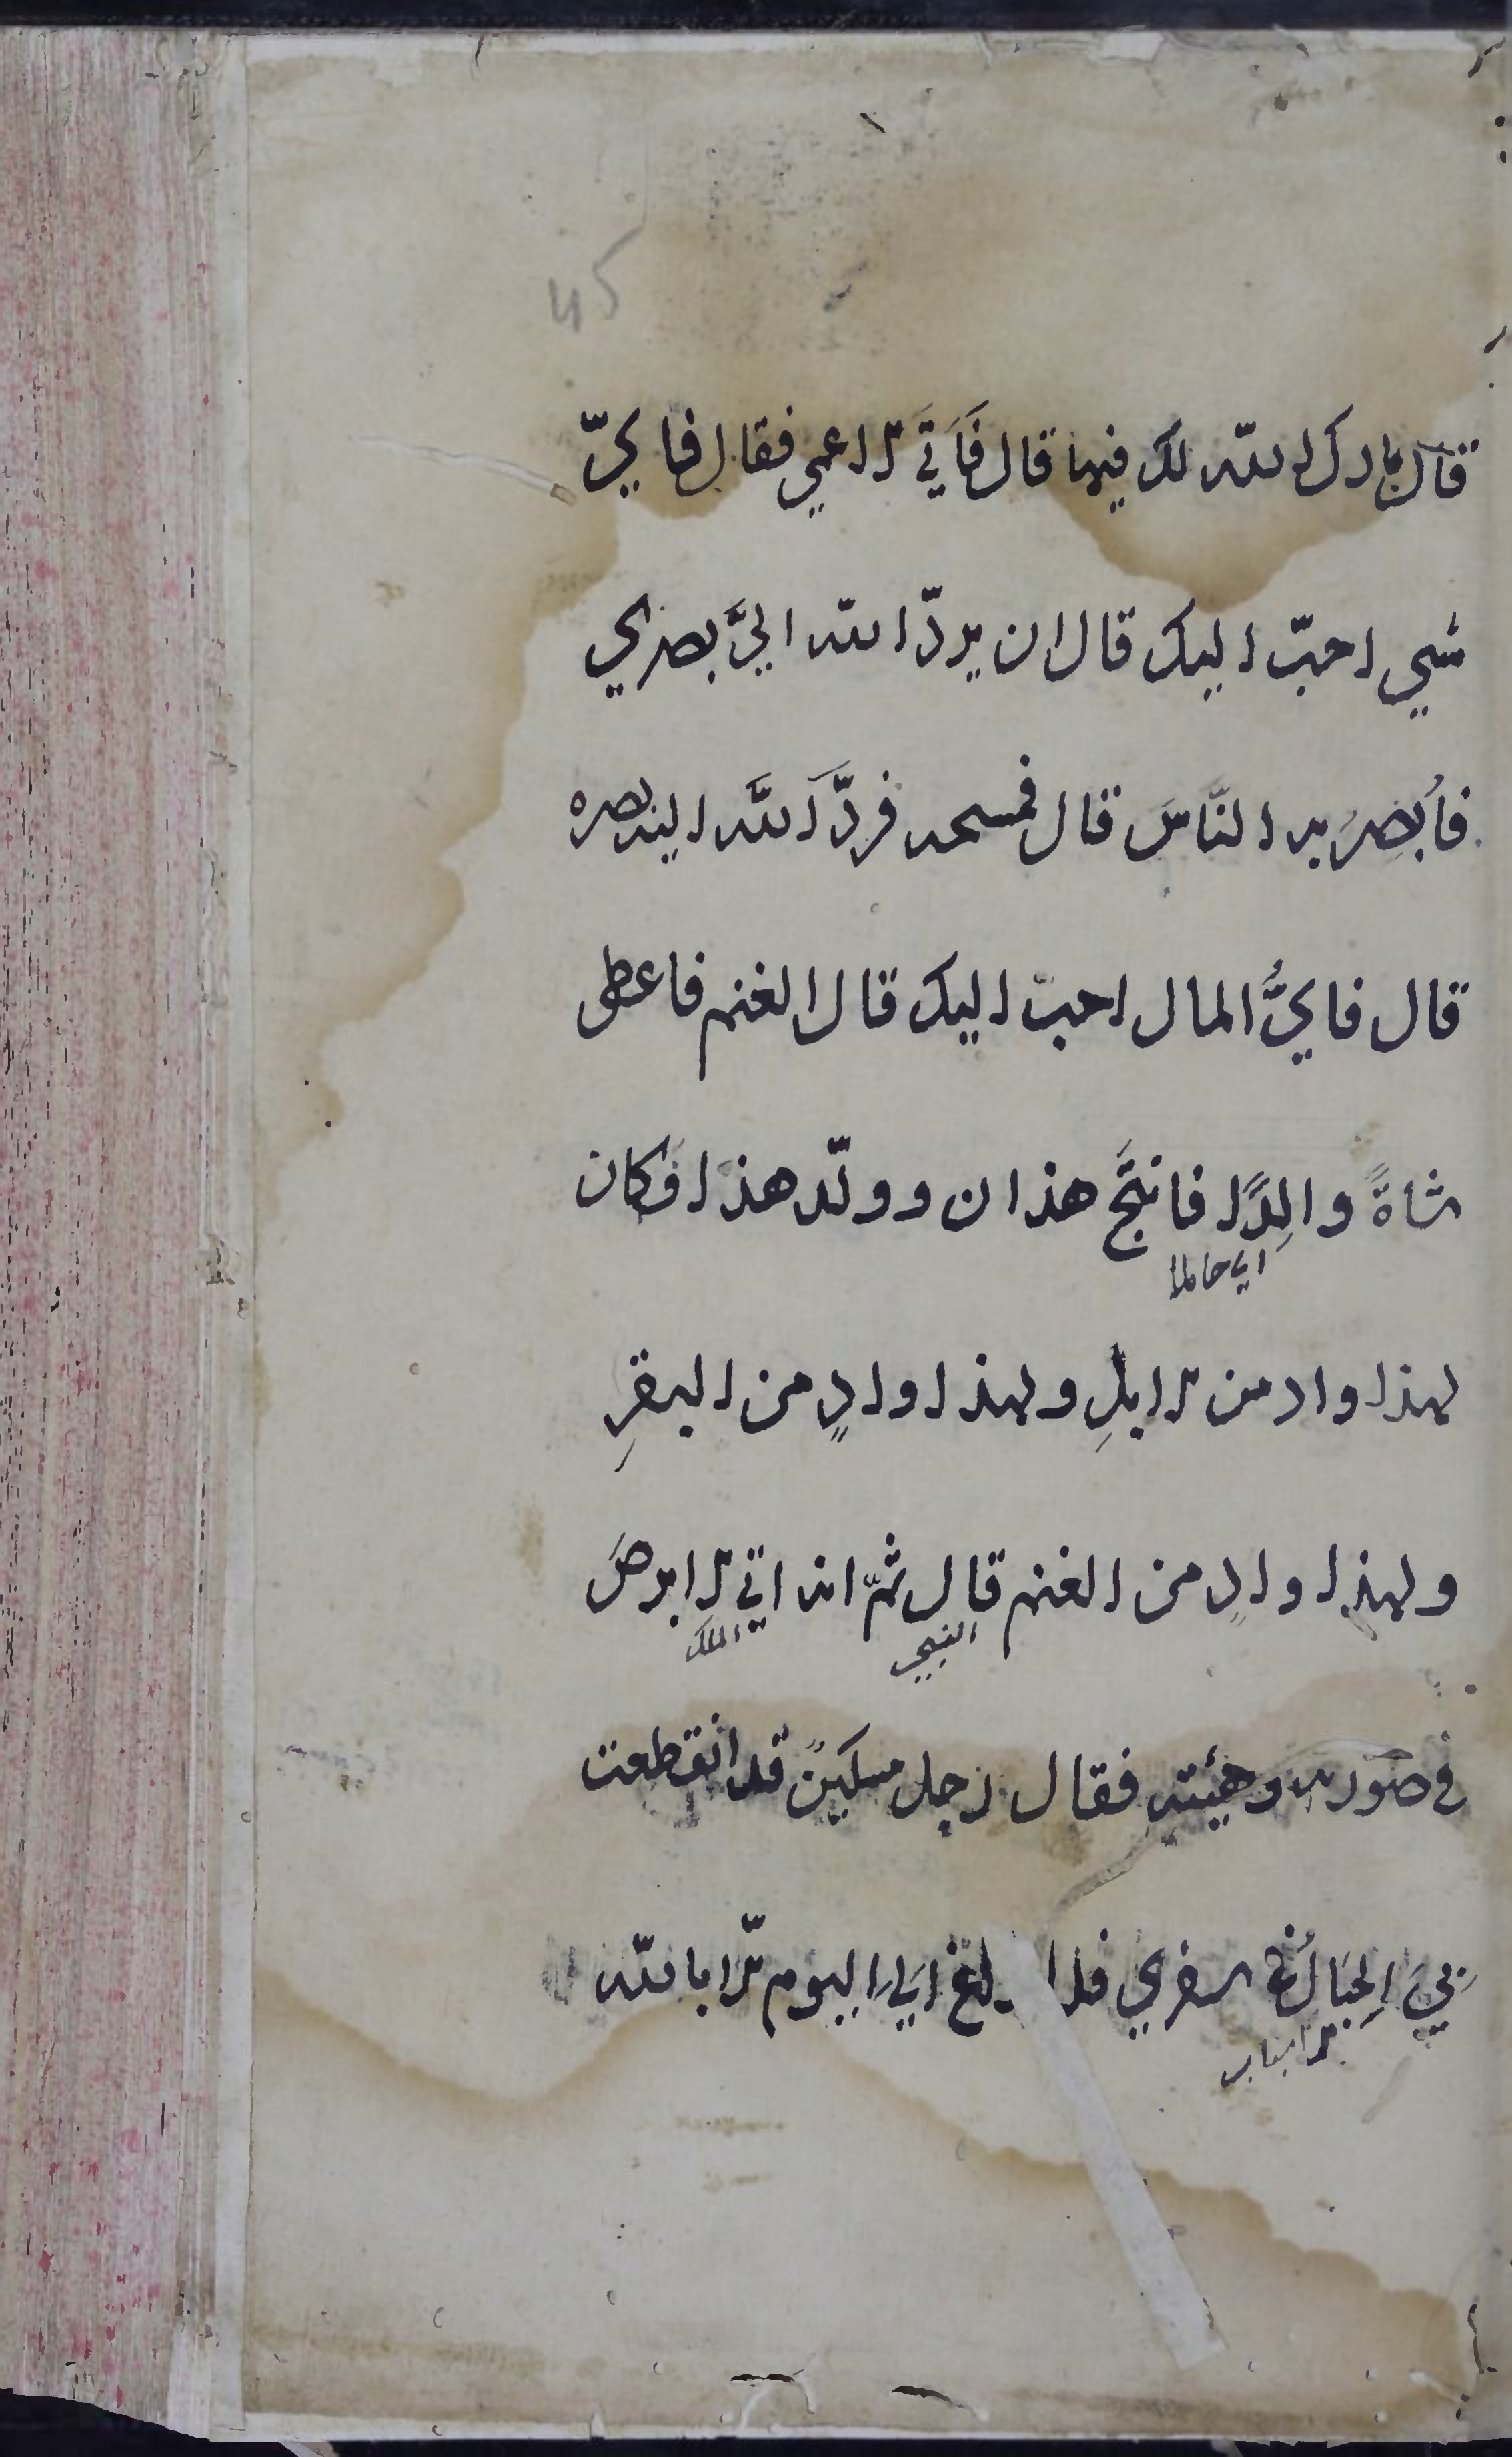 45
قال بارك الله لك فيها قال فَاَتَي الاعمي فقال فايّ
شيي احبّ اليك قال ان يردّ الله اليَّ بصري
فاُبصِرُ به النَّاسَ قال فمسحه فردَّ اَللَّه اليه بصره
قال فايُّ المال احبّ اليك قال الغنم فاعطى
شاةً والِدًا فانتَجَ هذان وولّد هذا فكان
اي حاملا
لهذا واد من الابلِ ولهذا وادٍ من البقرِ
ولهذا وادٍ من الغنم قال ثمّ انه اتي الابرصَ
النبي
الملك
في صورته وهيئته فقال رجل مسكينٌ قد انقطعت
بيَ الحِبَالُ في سفري فلا بلاغ لي اليوم الّا بالله
الاسباب